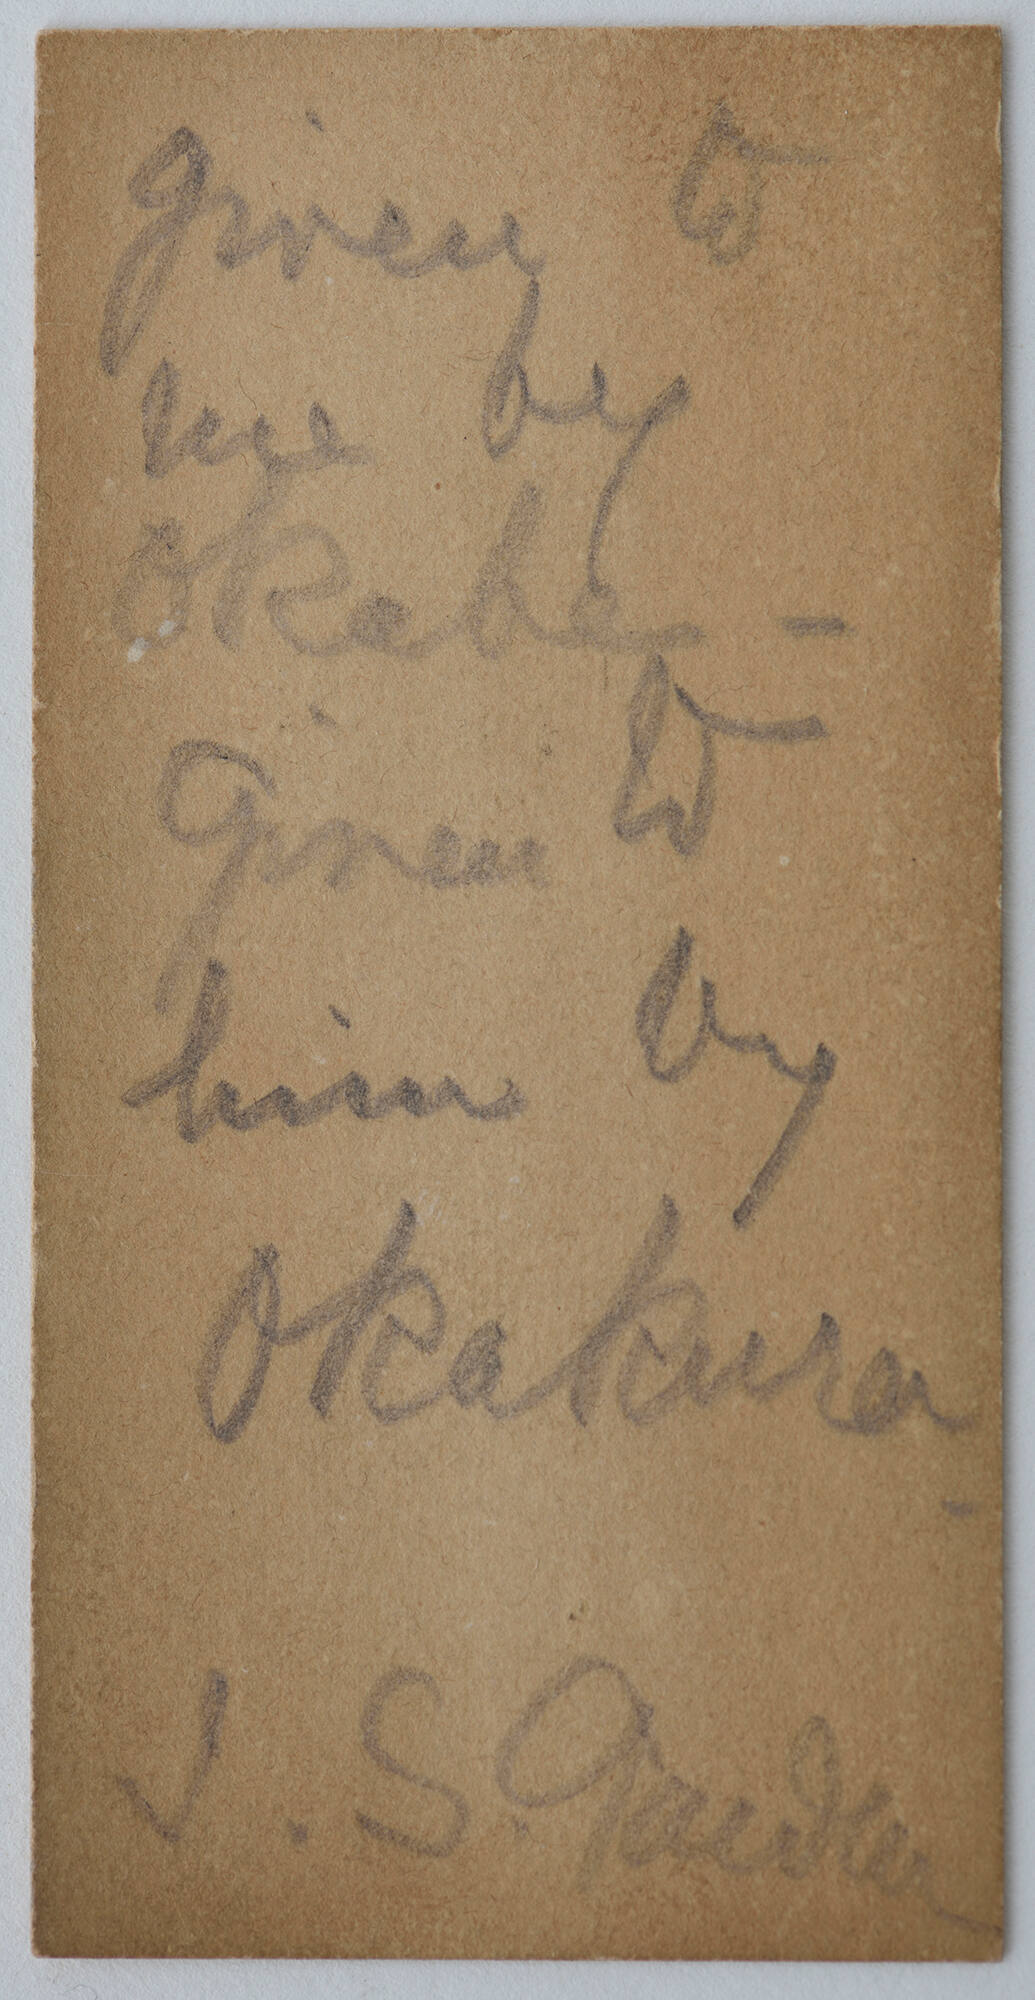 given to
me by
Okabe –
Given to
him by
Okakura –
I. S. Gardner